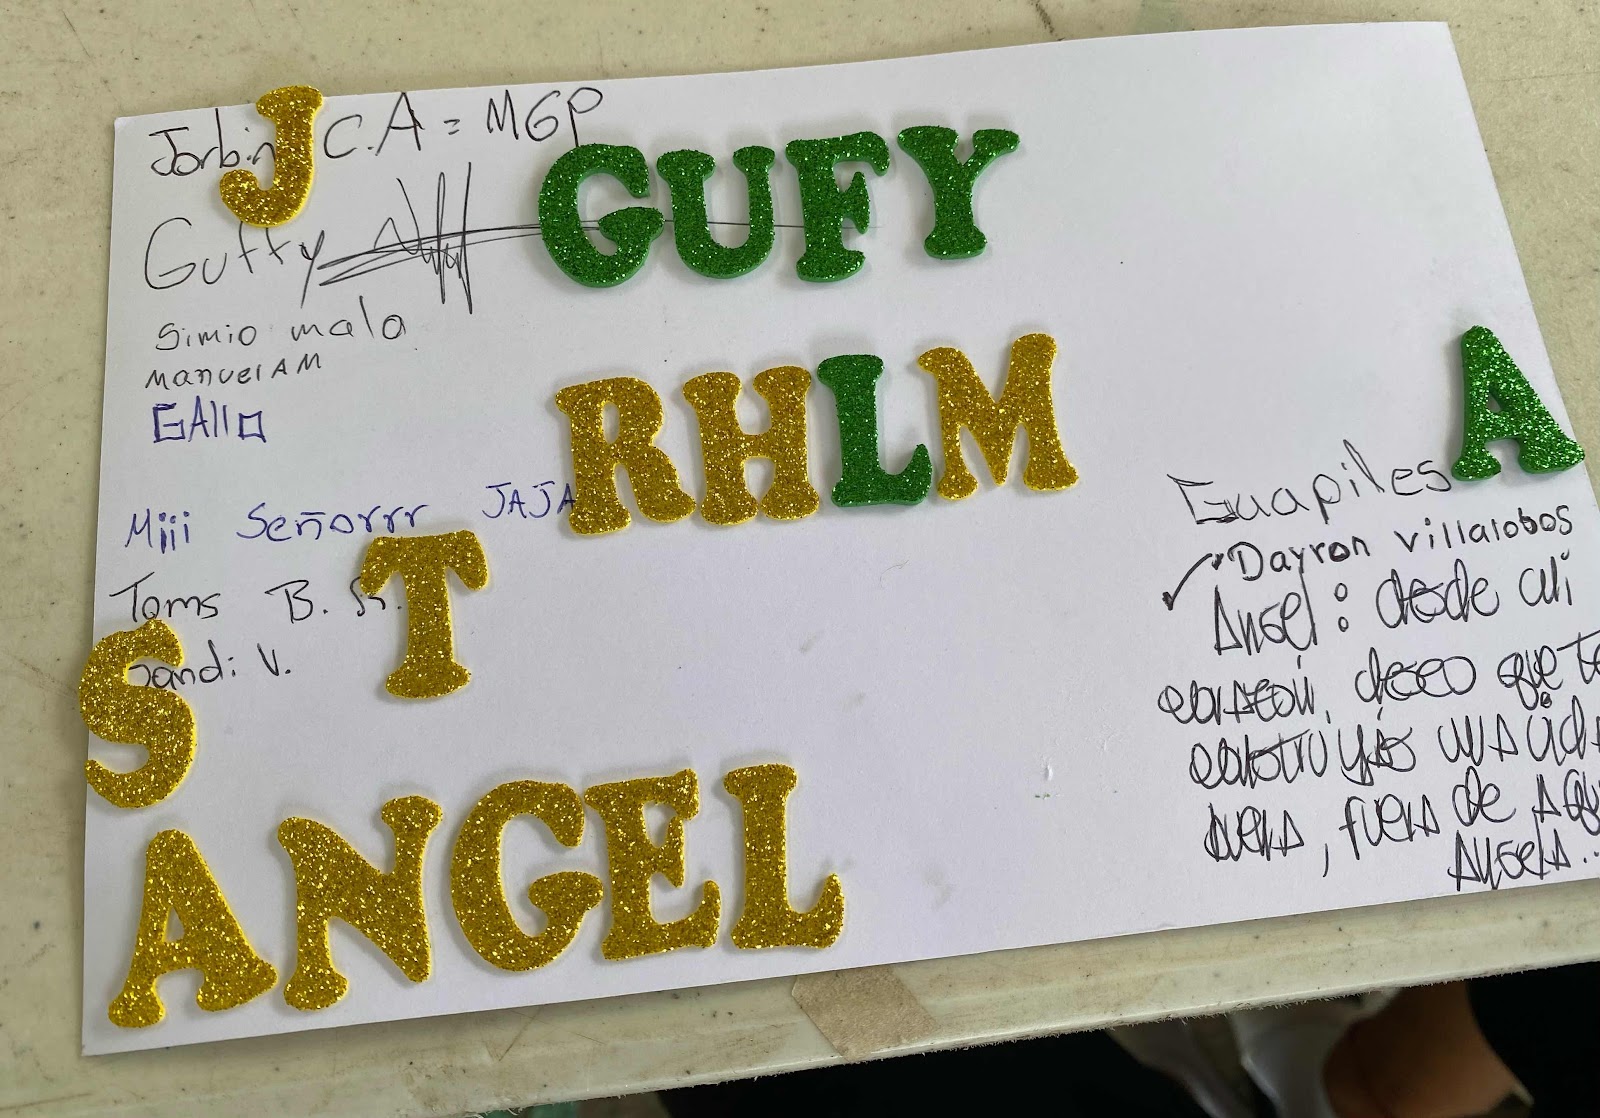 Jorbin J C.A = MGP
Guffy GUFY
simio malo
Manuel AM
GAllo
RHLM
Miii Señorrr JAJA
Toms B. T
S andi V.
ANGEL
A
Guapiles
Dayron villalobos
Angel: desde mi
corazón, deseo que te
construyás una vida
nueva, fuera de aqu
Angela...